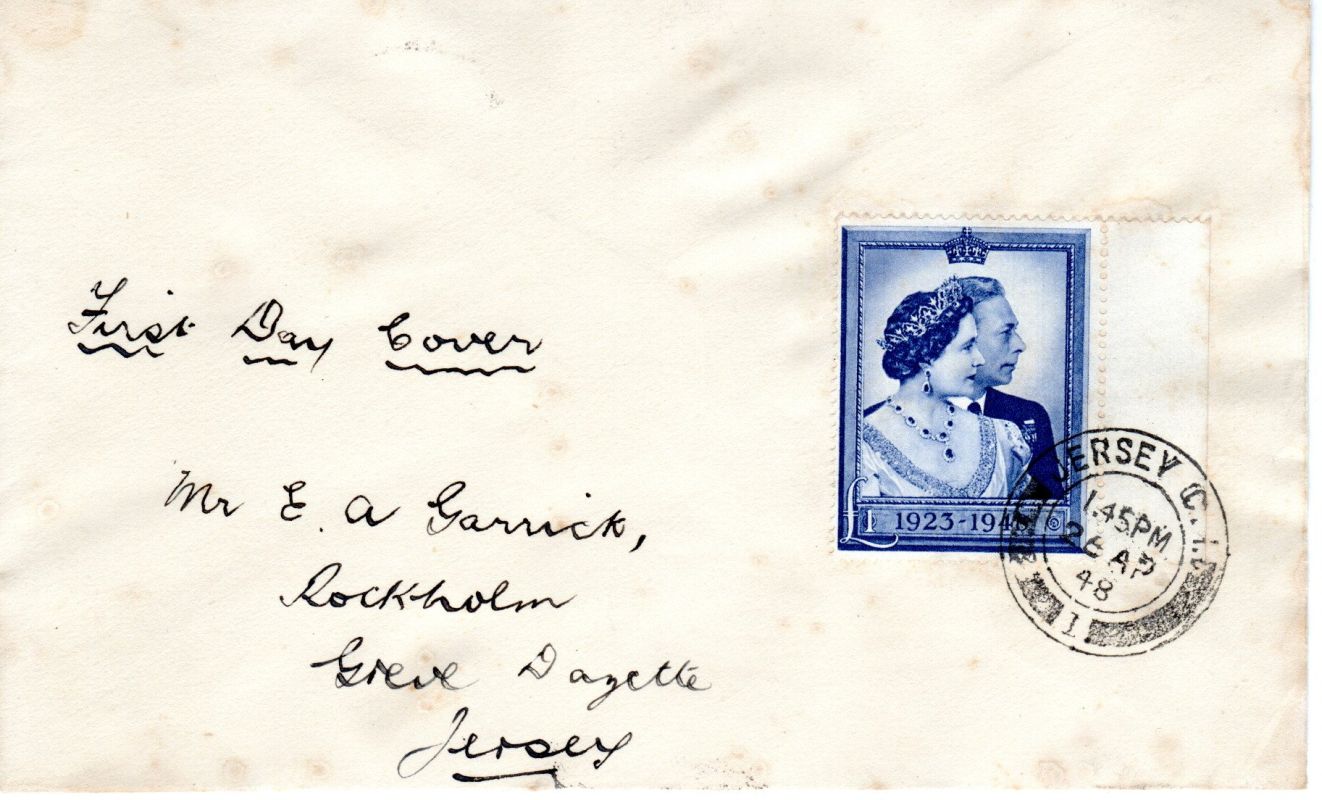 First Day Cover
Mr E. A Garrick,
Rockholm
Greve Dazette
Jersey
£1 1923-194
JERSEY C.I.
1.45PM
26 AP
48
1